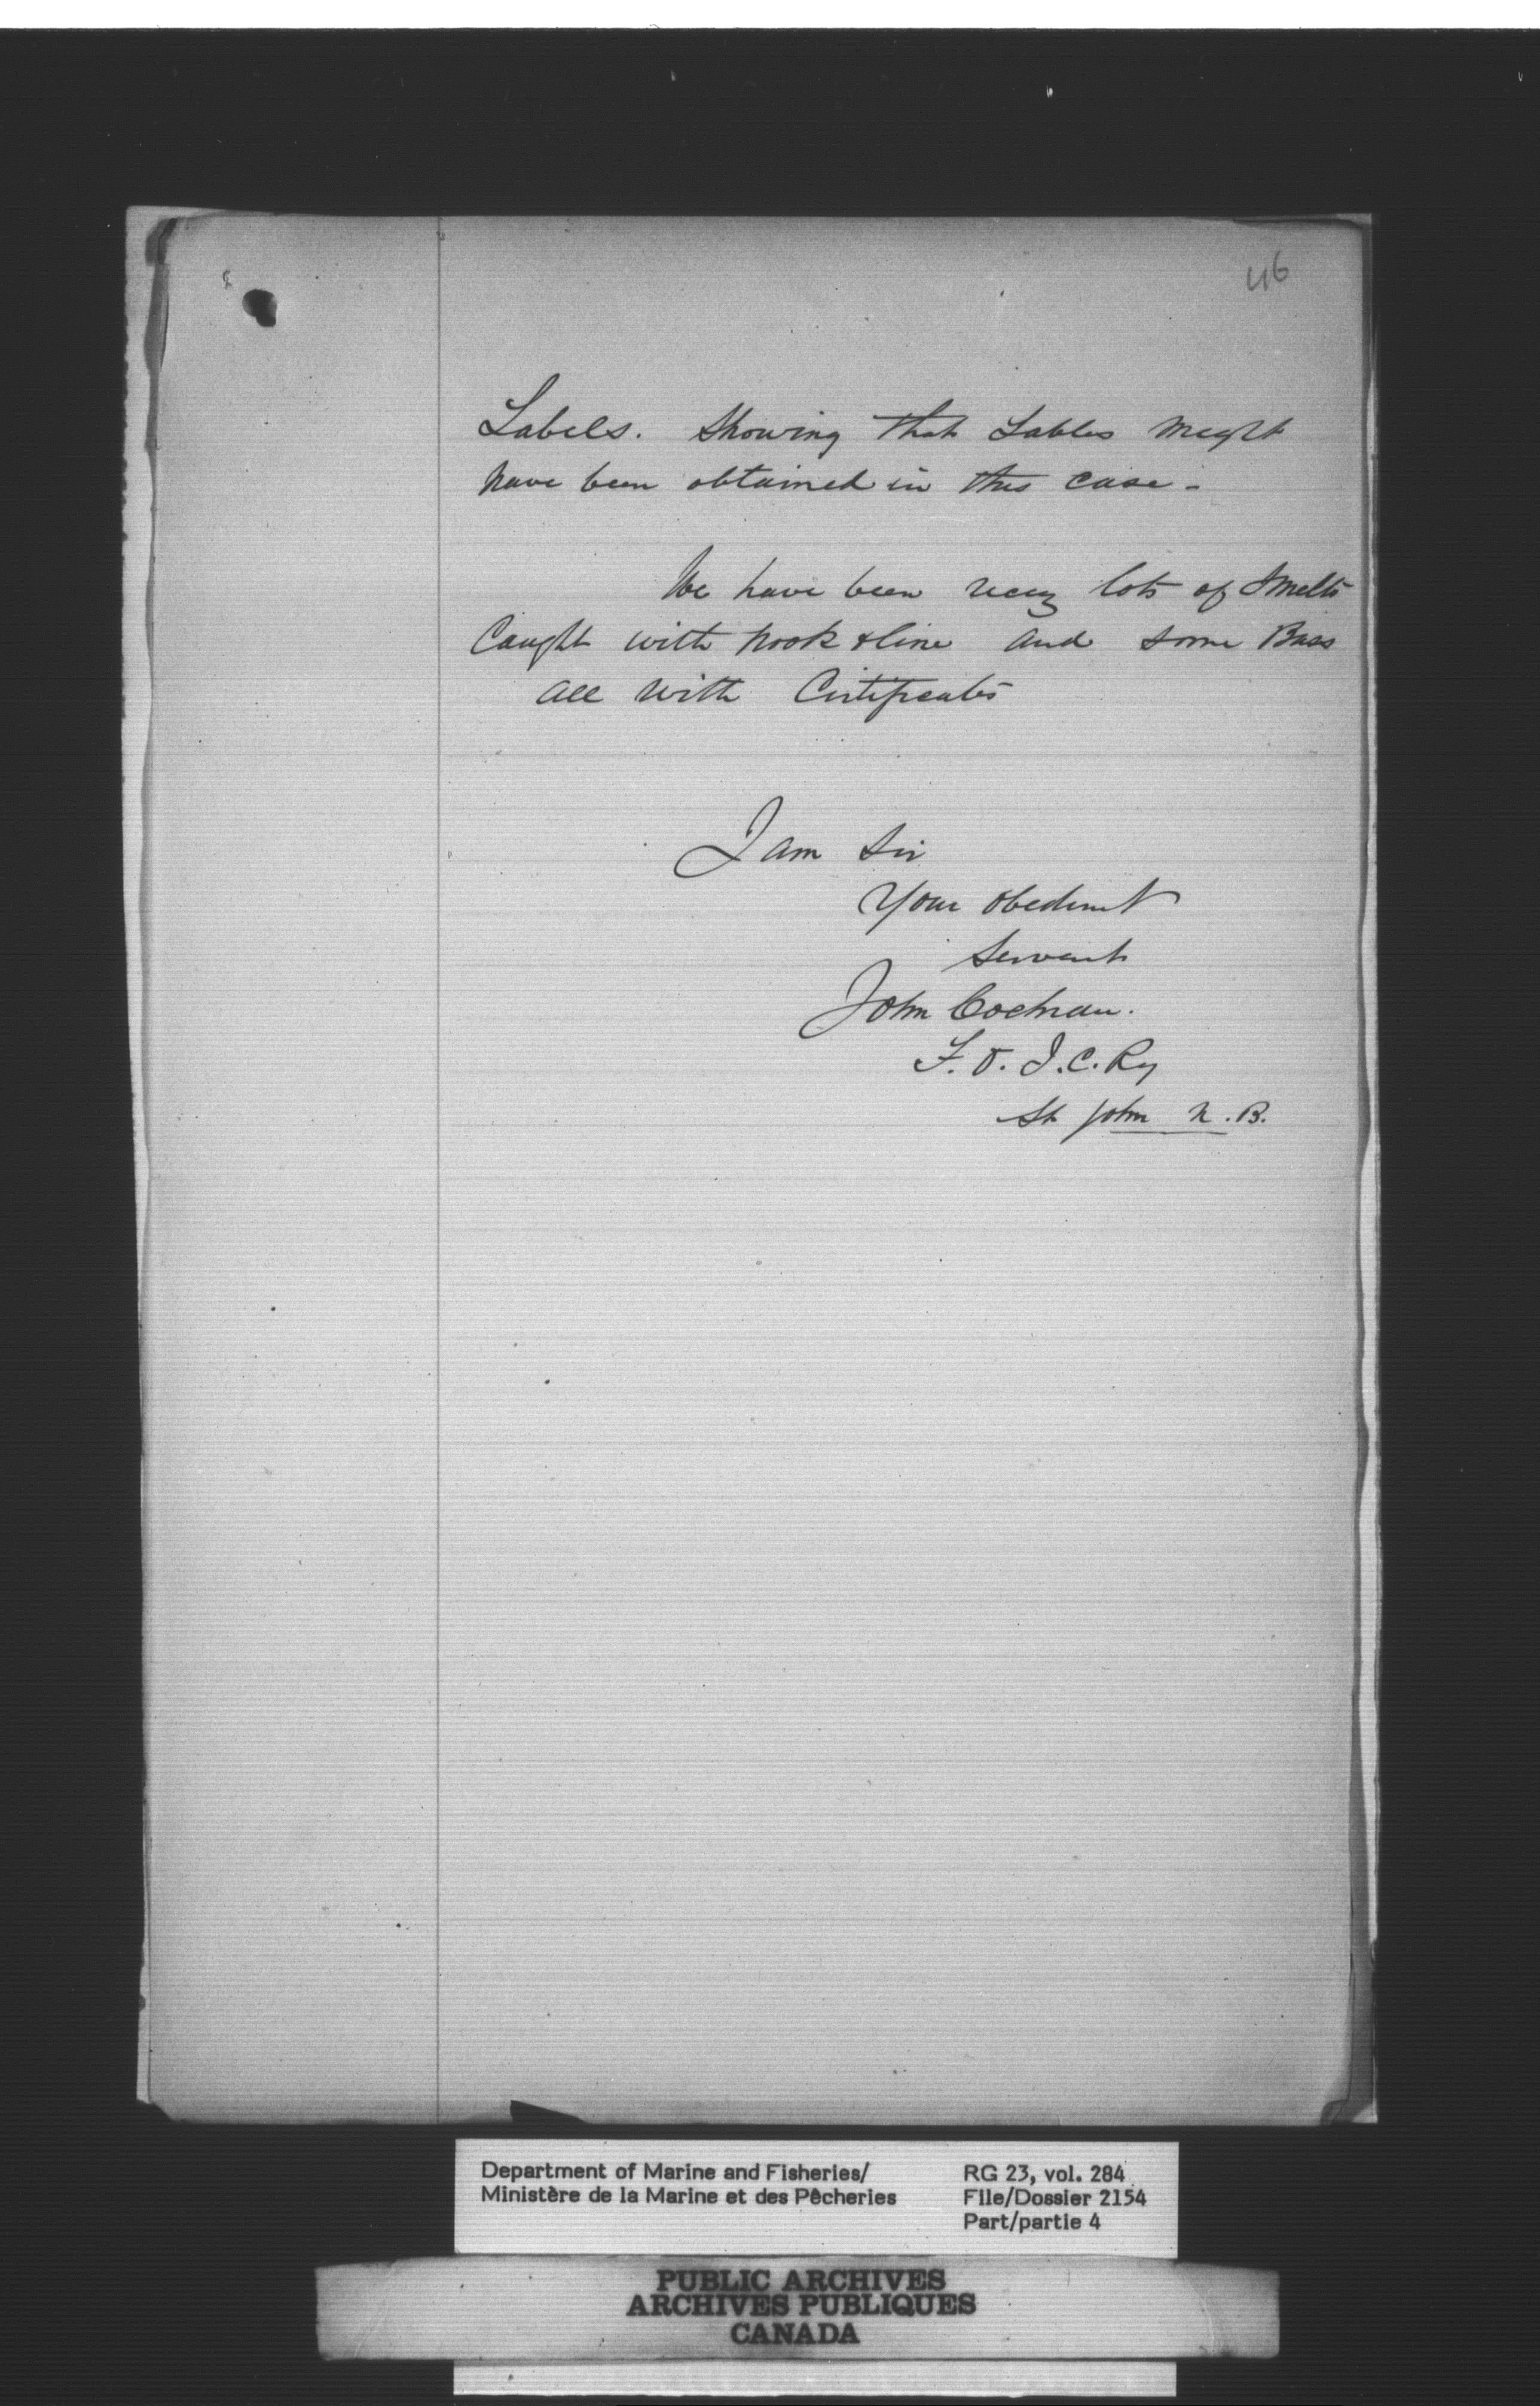 46
Labels. Showing that Lables might
have been obtained in this case -
We have been many lots of Smelts
Caught with hook & line and some Bass
all with Certificates
I am Sir
Your obedient
Servant
John Cochran.
F. O. I. C. Ry
St John N. B.
Department of Marine and Fisheries/ RG 23, vol. 284
Ministère de la Marine et des Pêcheries File/Dossier 2154
Part/partie 4
PUBLIC ARCHIVES
ARCHIVES PUBLIQUES
CANADA